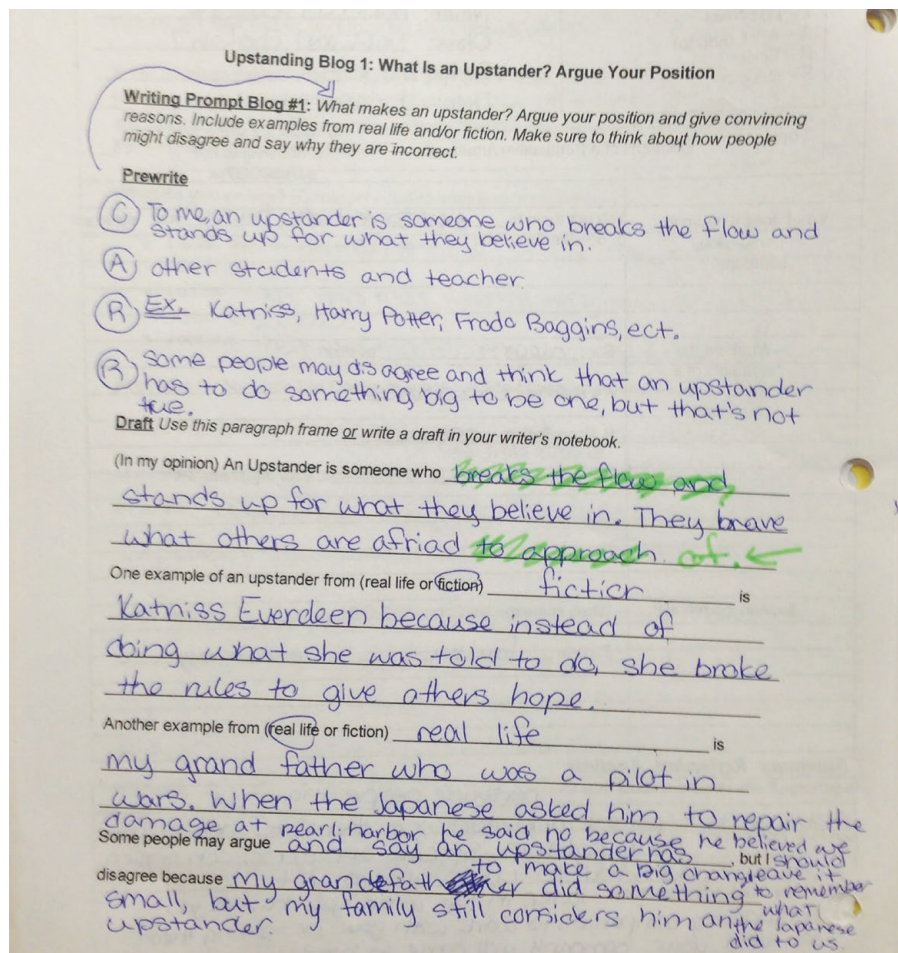 Upstanding Blog 1: What Is an Upstander? Argue Your Position
Writing Prompt Blog #1: What makes an upstander? Argue your position and give convincing
reasons. Include examples from real life and/or fiction. Make sure to think about how people
might disagree and say why they are incorrect.
Prewrite
C To me, an upstander is someone who breaks the flow and
stands up for what they believe in.
A other students and teacher.
R Ex. Katniss, Harry Potter, Frodo Baggins, ect.
R Some people may disagree and think that an upstander
has to do something big to be one, but that's not
true.
Draft Use this paragraph frame or write a draft in your writer's notebook.
(In my opinion) An Upstander is someone who breaks the flow and
stands up for what they believe in. They brave
what others are afriad to approach. of.
One example of an upstander from (real life or fiction) fiction is
Katniss Everdeen because instead of
doing what she was told to do, she broke
the rules to give others hope.
Another example from (real life or fiction) real life is
my grand father who was a pilot in
wars. When the Japanese asked him to repair the
damage at pearl harbor he said no because he believed we
should
leave it
to remember
what
the Japanese
did to us.
Some people may argue and say an upstander has , but I
to make a big change
disagree because my grandefather did something
small, but my family still considers him an
upstander.